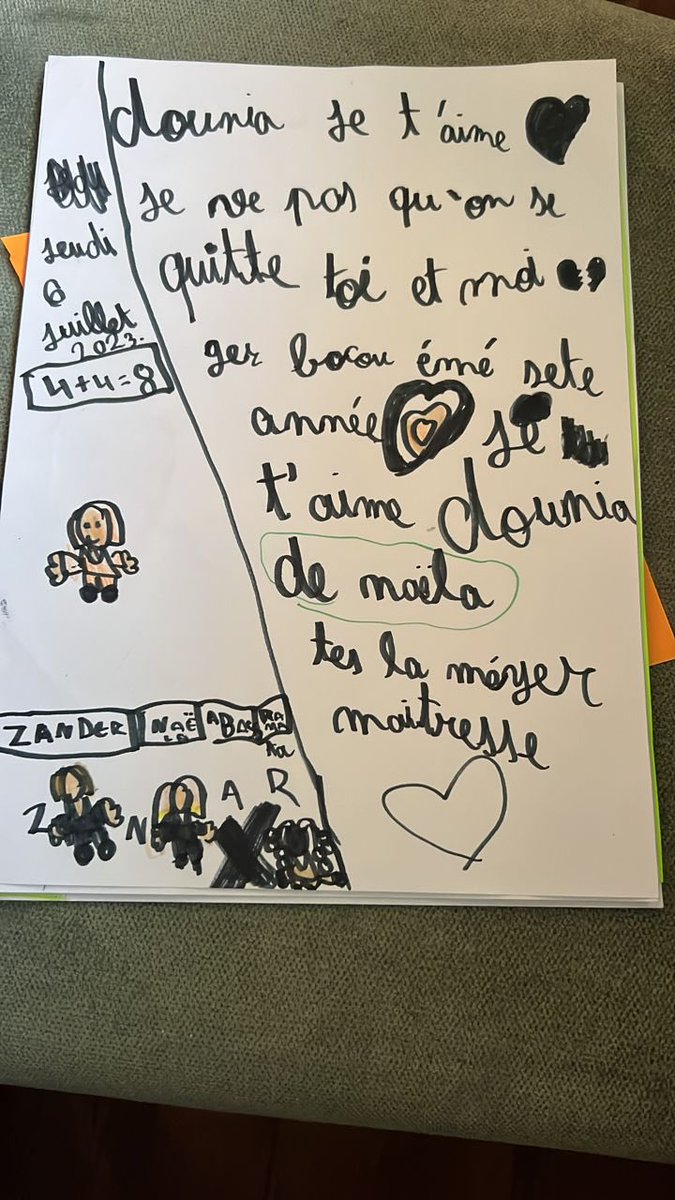 dounia je t'aime
je ve pas qu'on se
quitte toi et moi
ger bocou émé sete
année je
t'aime dounia
de noëla
tes la méyer
maitresse
jeudi
6
juillet
2023.
4+4=8
ZANDER
NOË
LA
ABA
RA
MA
ta
Z
N
A
R